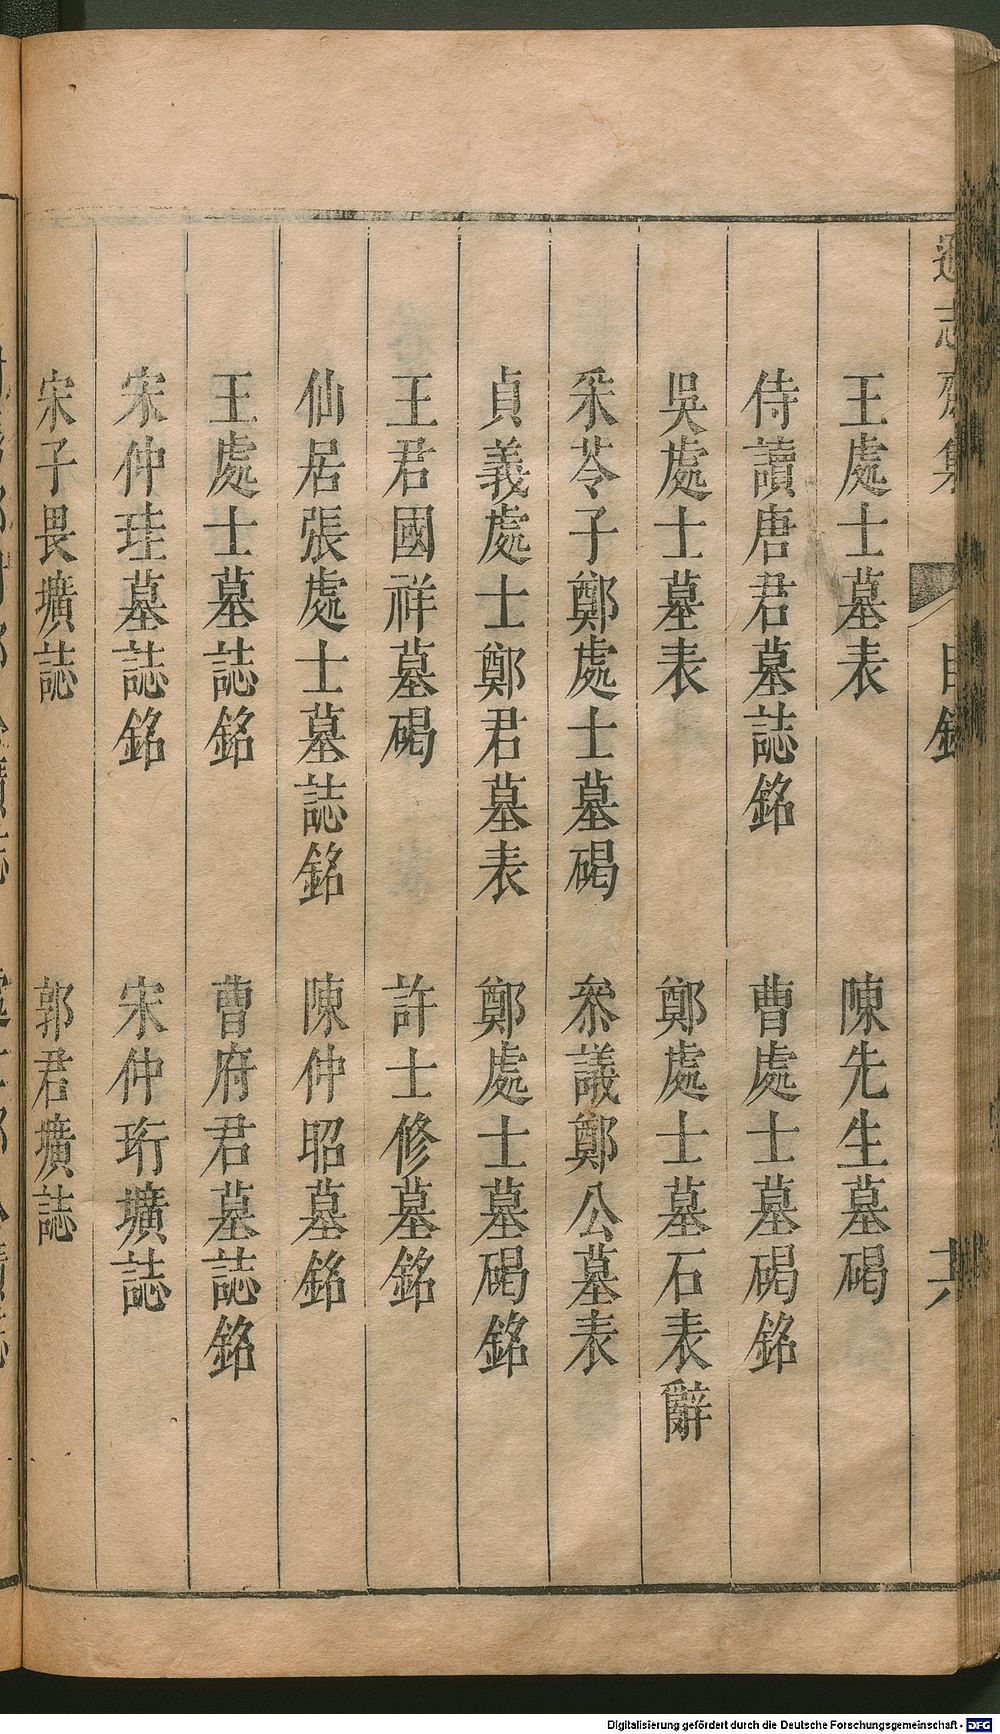 遜志齋集 目錄 共
王處士墓表 陳先生墓碣
侍讀唐君墓誌銘 曹處士墓碣銘
吳處士墓表 鄭處士墓石表辭
采苓子鄭處士墓碣 叅議鄭公墓表
貞義處士鄭君墓表 鄭處士墓碣銘
王君國祥墓碣 許士修墓銘
仙居張處士墓誌銘 陳仲昭墓銘
王處士墓誌銘 曹府君墓誌銘
宋仲珪墓誌銘 宋仲珩壙誌
宋子畏壙誌 郭君壙誌
Digitalisierung gefördert durch die Deutsche Forschungsgemeinschaft - DFG